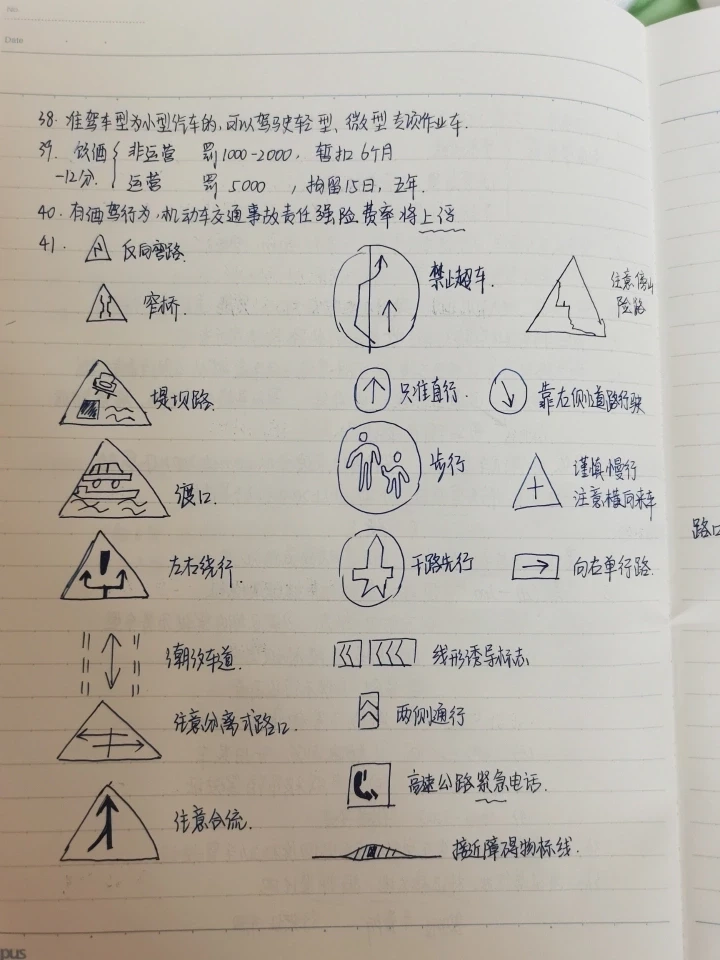 No.
Date
38. 准驾车型为小型汽车的,可以驾驶轻型、微型专项作业车.
39. 饮酒 非运营 罚1000-2000, 暂扣6个月
-12分. 运营 罚 5000 , 拘留15日, 五年.
40. 有酒驾行为,机动车交通事故责任强险费率将上浮
41. 反向弯路.
禁止超车.
注意傍山
险路
窄桥.
堤坝路.
只准直行.
靠右侧道路行驶
渡口.
步行
谨慎慢行
注意横向来车
左右绕行.
干路先行
向右单行路.
潮汐车道.
线形诱导标志
注意分离式路口.
两侧通行
高速公路紧急电话.
注意合流.
接近障碍物标线.
路口
pus